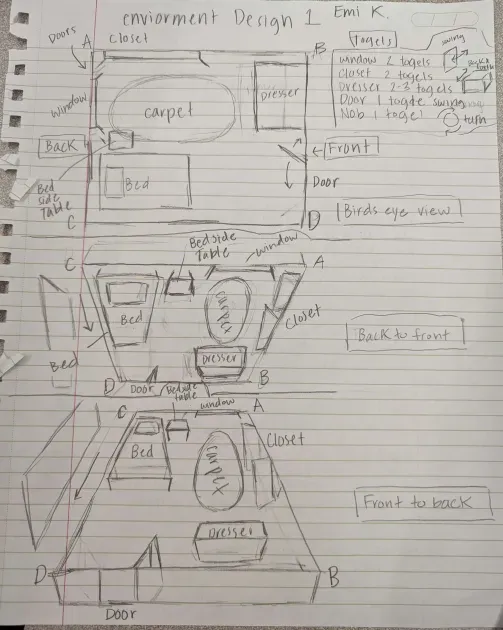 enviorment Design 1 Emi K.
Doors
A Closet B
Togels
swing
window 2 togels
Closet 2 togels
Dresser 2-3 togels
Door 1 togle swinging
Nob 1 togel
Back & forth
turn
window
carpet
Dresser
Back
Front
Bed side Table
Bed
Door
C D
Birds eye view
Bedside Table
window
C A
Bed
carpet
Closet
Dresser
Bed
D Door B
Back to front
Bedside table
window
C A
Bed
carpet
Closet
Dresser
Front to back
D B
Door